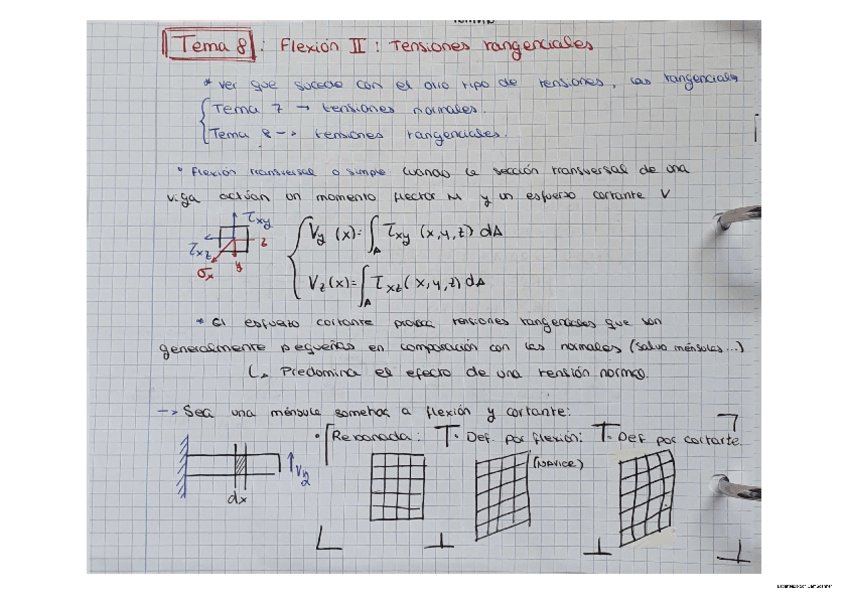 Tema 8: Flexión II: Tensiones tangenciales
* Ver que sucede con el otro tipo de tensiones, las tangenciales
Tema 7 → tensiones normales.
Tema 8 → tensiones tangenciales.
• Flexión transversal o simple cuando la sección transversal de una
viga actúan un momento flector M y un esfuerzo cortante V
τxy
τxz
z
σx
y
Vy (x) = ∫A τxy (x,y,z) dA
Vz (x) = ∫A τxz (x,y,z) dA
* El esfuerzo cortante provoca tensiones tangenciales que son
generalmente pequeñas en comparación con las normales (salvo ménsulas...)
↳ Predomina el efecto de una tensión normal.
→ Sea una ménsula sometida a flexión y cortante:
• Rebanada: • Def. por flexión: • Def por cortante.
(Navier)
dx